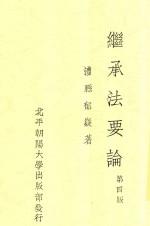 繼承法要論
第四版
禮縣郁嶷著
北平朝陽大學出版部發行